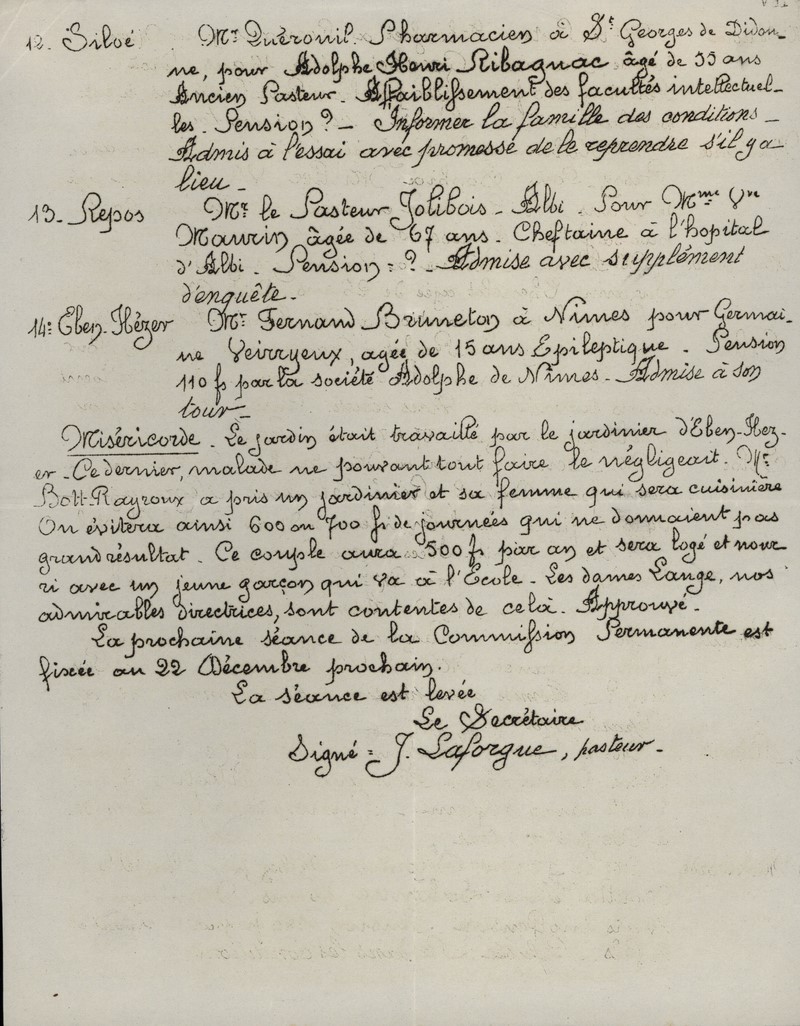 12. Siloé. Mr Quérouil. Pharmacien à St Georges de Didon-
ne, pour Adolphe Henri Ribagnac âgé de 55 ans
Ancien Pasteur. Affaiblissement des facultés intellectuel-
les. Pension ? - Informer la famille des conditions -
Admis à l'essai avec promesse de le reprendre s'il y a
lieu -
13. Repos Mr le Pasteur Jolibois - Albi. Pour Mme Vve
Maurin âgée de 67 ans. Cheftaine à l'hopital
d'Albi. Pension = ? - Admise avec supplément
d'enquête.
14= Eben-Hézer Mr Fernand Bruneton à Nîmes pour Germai-
ne Veirryeux, agée de 15 ans Epileptique. Pension
110 f par la société Adolphe de Nîmes - Admise à son
tour -
Miséricorde. Le jardin était travaillé par le jardinier d'Eben-Hez-
er. Ce dernier, malade ne pouvant tout faire le négligeait. Mr
Bott-Rayroux a pris un jardinier et sa femme qui sera cuisinière
On évitera ainsi 600 ou 700 f. de journées qui ne donnaient pas
grand résultat. Ce couple aura 500 f par an et sera logé et nour-
ri avec un jeune garçon qui va à l'Ecole. Les dames Lange, nos
admirables directrices, sont contentes de celà. Approuvé.
La prochaine séance de la Commission Permanente est
fixée au 22 Décembre prochain.
La séance est levée
Le Secrétaire
Signé = J. Laforgue, pasteur.